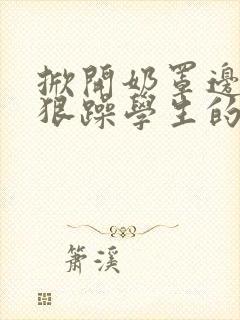 掀開奶罩邊
狠躁學生的
簫溪